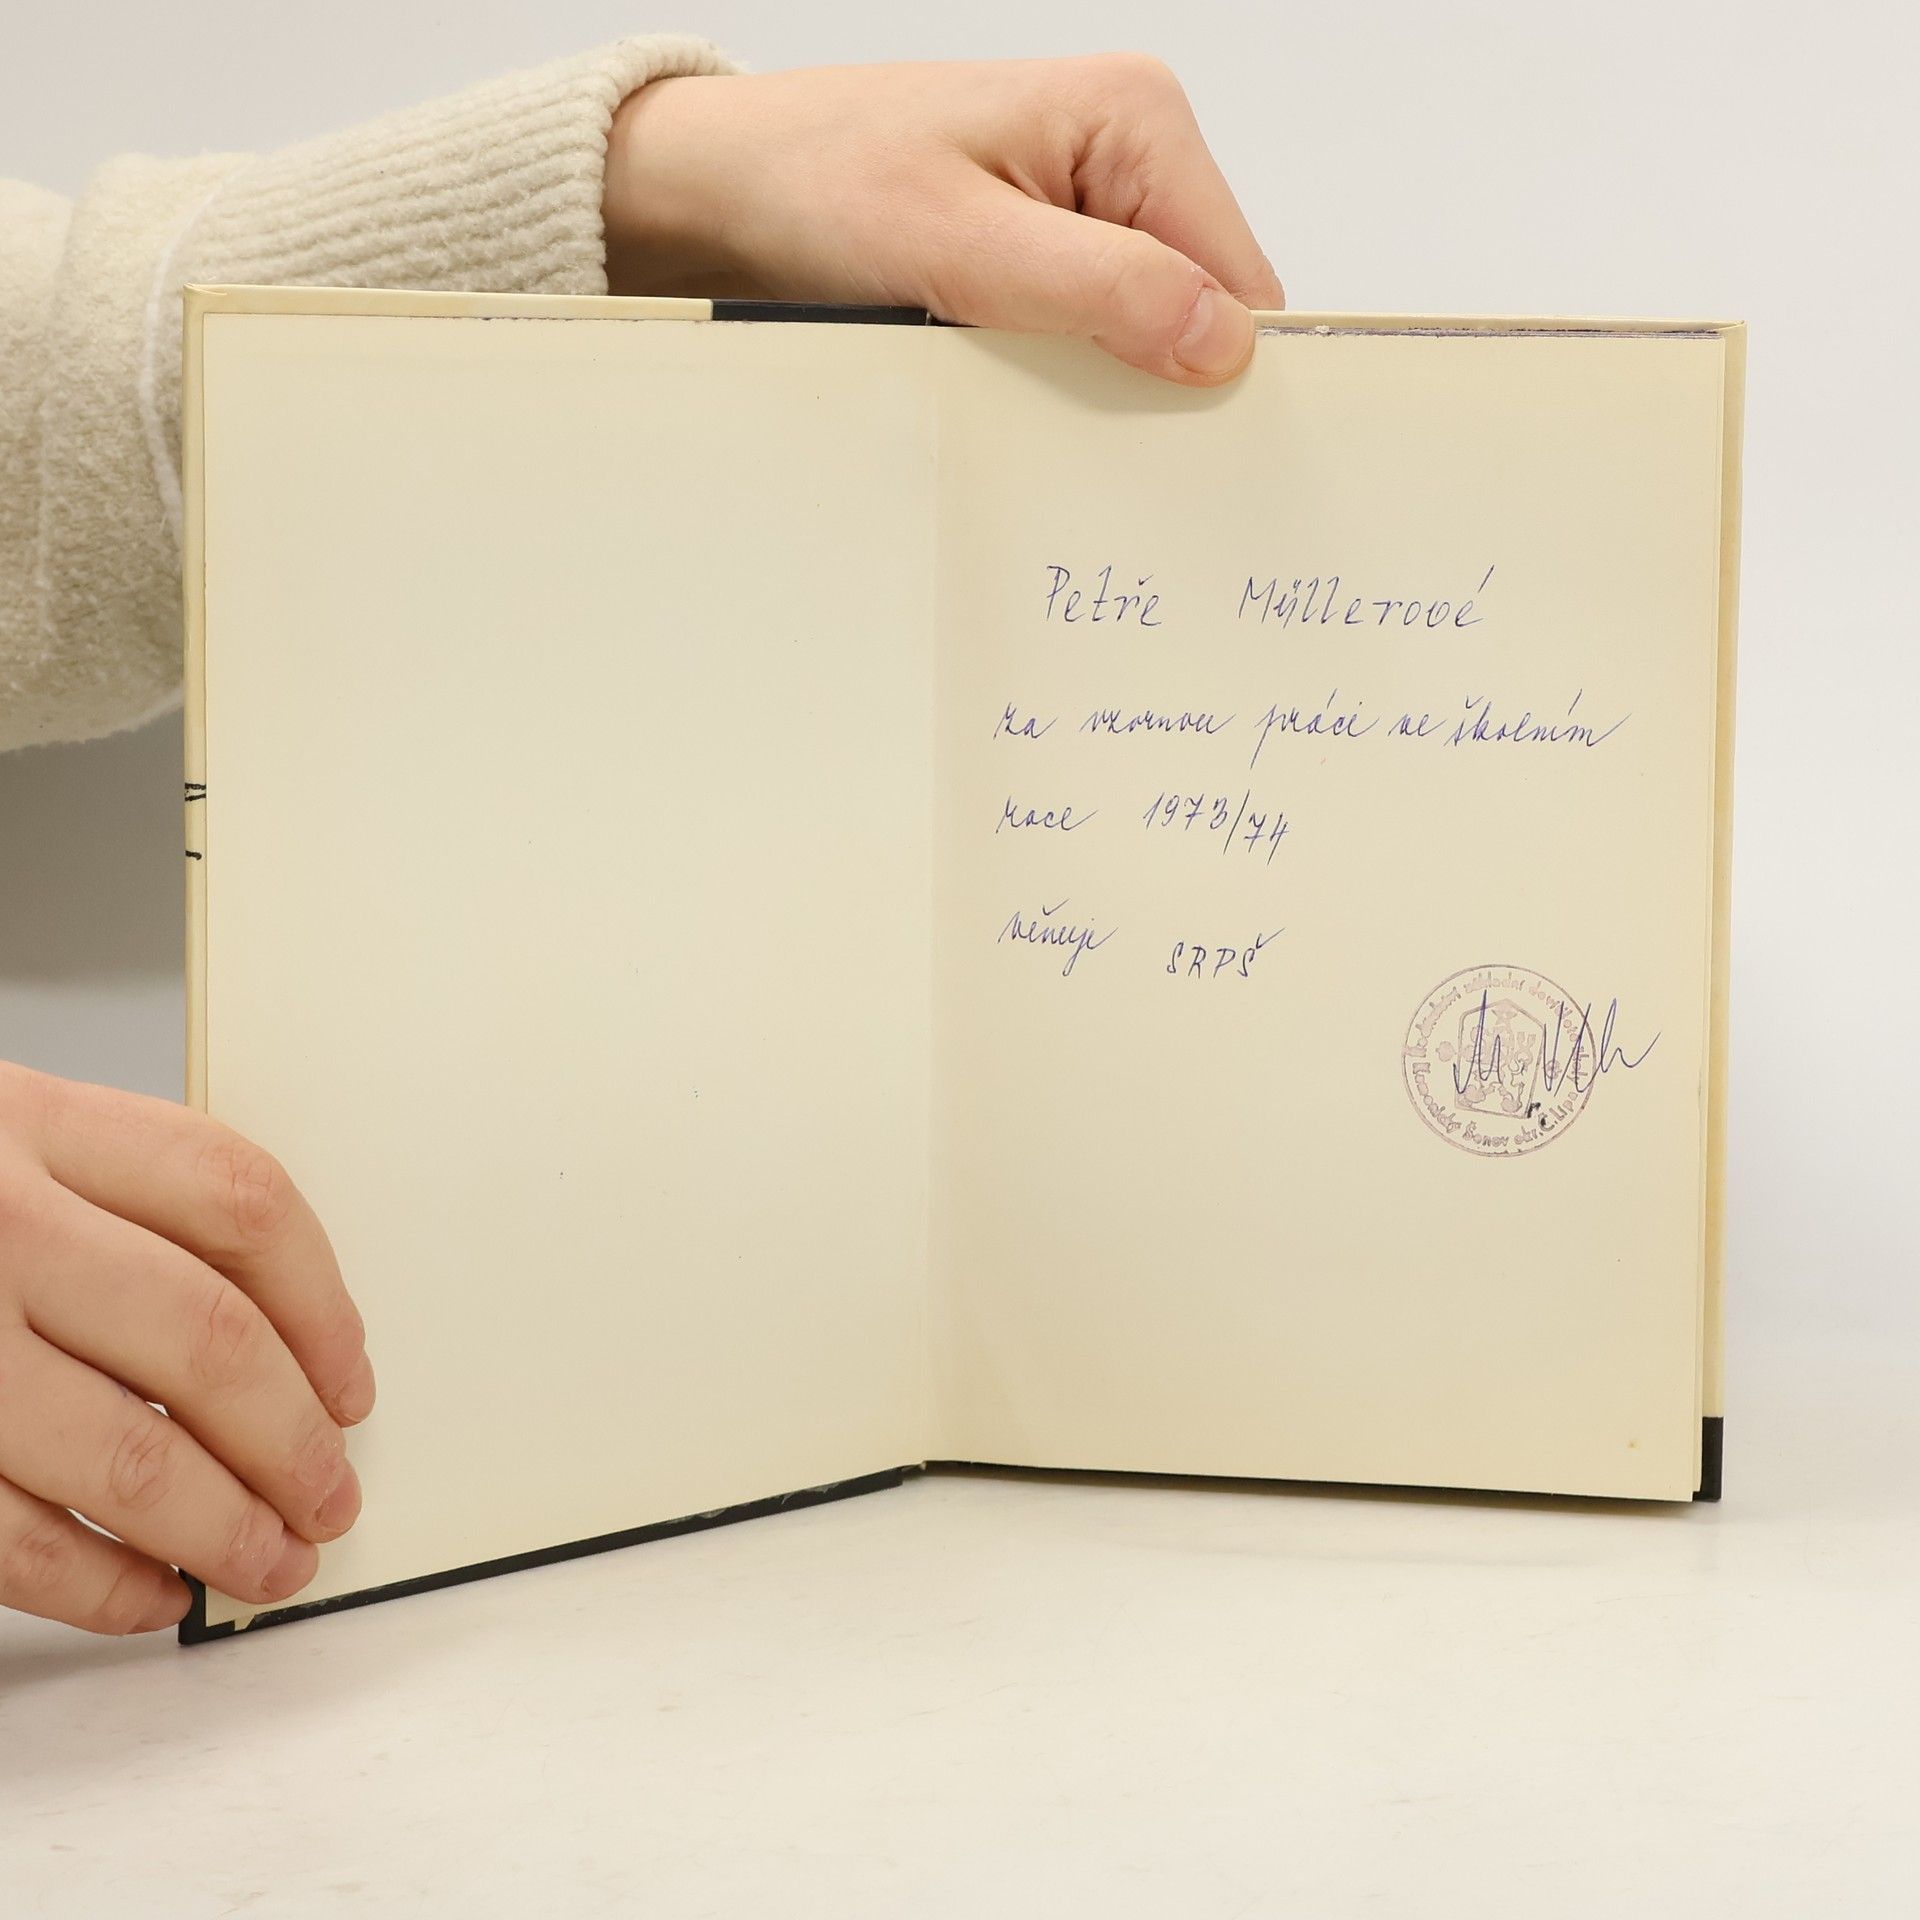 Petře Müllerové
za vzornou práci ve školním
roce 1973/74
věnuje SRPŠ
základní devítileté školy
Kamenický Šenov okr. Č. Lípa